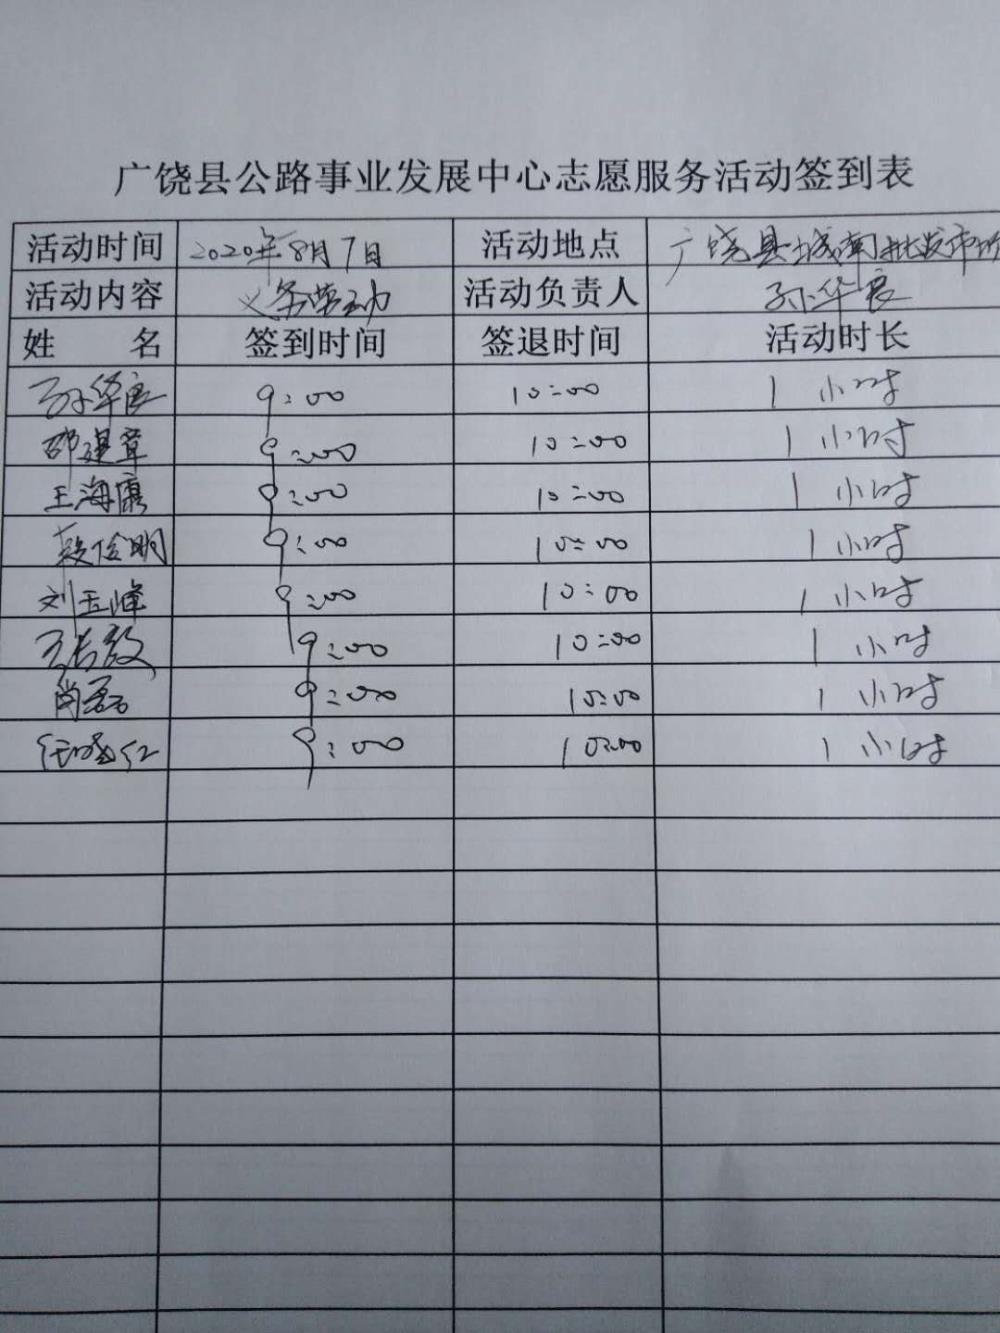 广饶县公路事业发展中心志愿服务活动签到表
活动时间 2020年8月7日 活动地点 广饶县城南批发市场
活动内容 义务劳动 活动负责人 孙华良
姓 名 签到时间 签退时间 活动时长
孙华良 9:00 10:00 1 小时
邵建章 9:00 10:00 1 小时
王海康 9:00 10:00 1 小时
俭明 9:00 10:00 1 小时
刘玉峰 9:00 10:00 1 小时
王长 9:00 10:00 1 小时
肖磊 9:00 10:00 1 小时
任晓红 9:00 10:00 1 小时